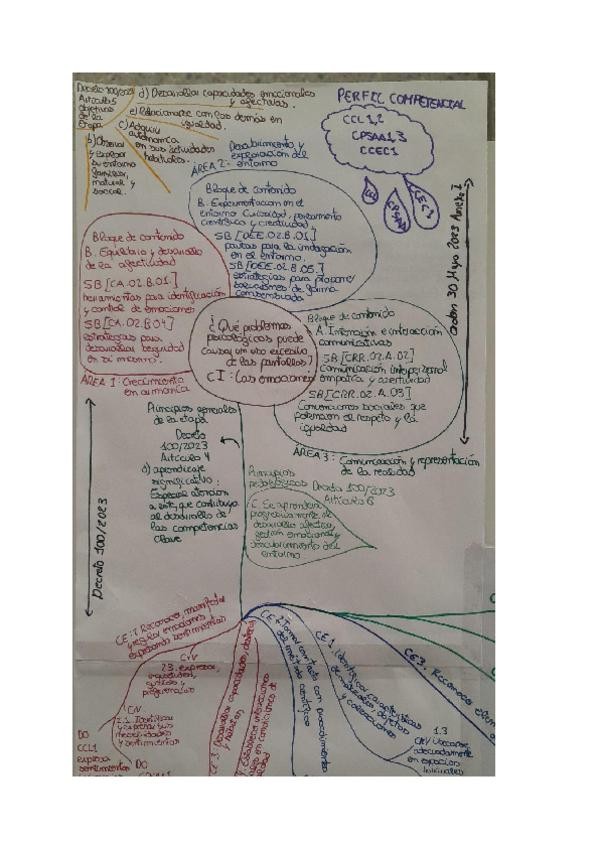 Decreto 100/2023
Artículo 5
objetivos
de la
Etapa
d) Desarrollar capacidades emocionales
y afectivas.
e) Relacionarse con los demás en
igualdad.
c) Adquirir
autonomía
en sus actividades
habituales.
b) Observar
y explorar
su entorno
familiar,
natural y
social.
PERFIL COMPETENCIAL
CCL 1,2
CPSAA 1,3
CCEC1
CCL
CPSAA
CCEC1
ÁREA 2: Descubrimiento y
exploración del
entorno
Bloque de contenido
B. Experimentación en el
entorno. Curiosidad, pensamiento
científico y creatividad
SB [DEE.02.B.01.]
pautas para la indagación
en el entorno.
SB [DEE.02.B.05.]
estrategias para proponer
soluciones de forma
Bloque de contenido
B. Equilibrio y desarrollo
de la afectividad
SB [CA.02.B.01.]
herramientas para identificación
y control de emociones
SB [CA.02.B.04]
estrategias para
desarrollar seguridad
en sí mismo.
ÁREA 1: Crecimiento
en armonía
¿Qué problemas
psicológicos puede
causar un uso excesivo
de las pantallas?
CI: Las emociones
Bloque de contenido
A. Intención e interacción
comunicativas
SB [CRR.02.A.02]
Comunicación interpersonal
empatía y asertividad
SB [CRR.02.A.03]
Convenciones sociales que
potencian el respeto y la
igualdad
ÁREA 3: Comunicación y representación
de la realidad
Orden 30 Mayo 2023 Anexo I
Decreto 100/2023
Principios generales
de la etapa
Decreto
100/2023
Artículo 4
aprendizaje
significativo:
Especial atención
a este, que contribuya
al desarrollo de
las competencias
clave
Principios
pedagógicos
Decreto 100/2023
Artículo 6
C. Se aprenderá
progresivamente al
desarrollo afectivo,
gestión emocional y
descubrimiento del
entorno
CE: 2 Reconocer, manifestar
y regular emociones
expresando sentimientos
CEV
2.3. expresar
inquietudes,
gustos y
preferencias
CEV
2.1. Identificar
y expresar sus
necesidades
y sentimientos
DO
CCL1
expresa
sentimientos
DO
CE 3.
CE 2.
con procedimientos
del método científico
CE 1. Identificar características
de materiales, objetos
y colecciones
CE3. Reconocer
1.3
CEV Ubicarse
adecuadamente
en espacios
habituales